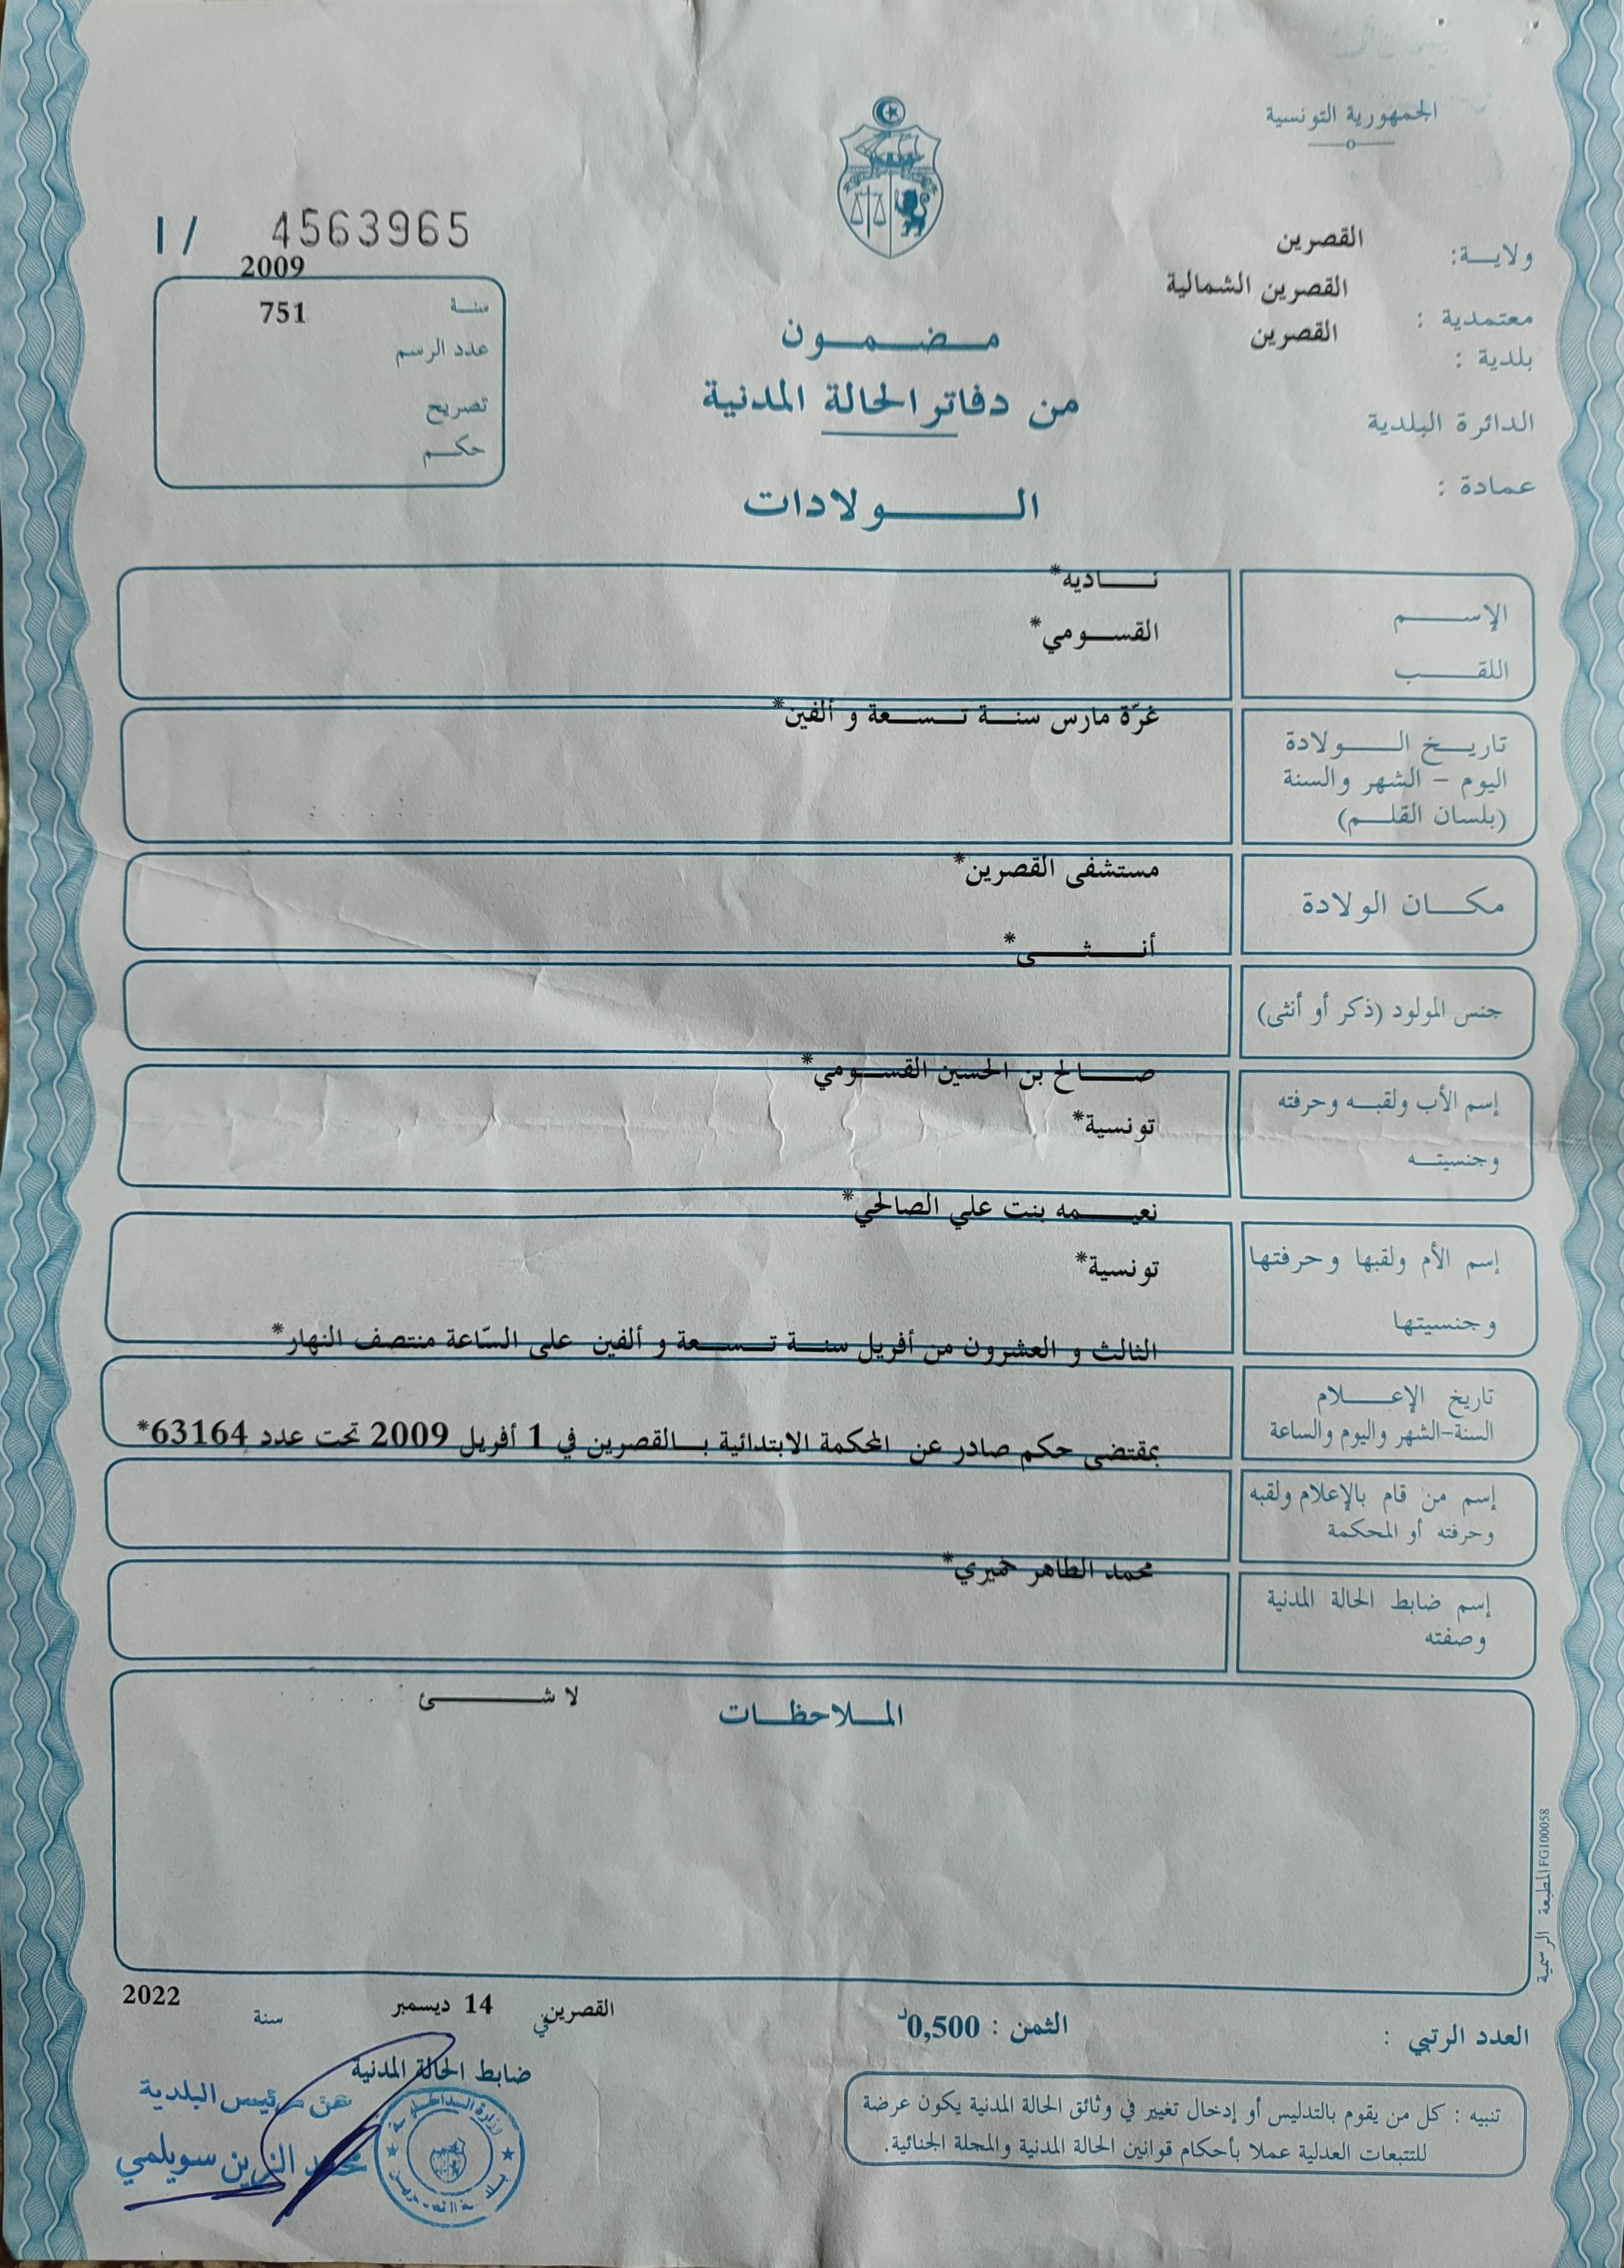 الجمهورية التونسية
ولايـــة: القصرين
معتمدية : القصرين الشمالية
بلدية : القصرين
الدائرة البلدية
عمادة :
مـــضـــمـــون
من دفاتر الحالة المدنية
الـــــولادات
I / 4563965
2009
سنــة
751
عدد الرسم
تصريح
حكــم
الإســـــم نـــــاديه*
اللقـــــب القســـومي*
تاريــخ الـــــولادة غرّة مارس سنـــة تـــســـعة و ألفين*
اليوم – الشهر والسنة
(بلسان القلــم)
مكـــان الولادة مستشفى القصرين*
أنـــــثـــــى*
جنس المولود (ذكر أو أنثى)
صـــــالح بن الحسين القســـومي*
إسم الأب ولقبــه وحرفته
تونسية*
وجنسيتــه
نعيـــــمه بنت علي الصالحي*
إسم الأم ولقبها وحرفتها
تونسية*
وجنسيتها
الثالث و العشرون من أفريل سنـــة تـــســـعة و ألفين على السّاعة منتصف النهار*
تاريخ الإعـــــلام
السنة-الشهر واليوم والساعة
بمقتضى حكم صادر عن المحكمة الابتدائية بـــالقصرين في 1 أفريل 2009 تحت عدد 63164*
إسم من قام بالإعلام ولقبه
وحرفته أو المحكمة
محمد الطاهر خميري*
إسم ضابط الحالة المدنية
وصفته
المـــلاحظـــات
لا شـــــــئ
المطبعة الرسمية FG100058
العدد الرتبي :
الثمن : 0,500د
القصرين في 14 ديسمبر سنة 2022
ضابط الحالة المدنية
عن رئيس البلدية
محمد الزين سويلمي
وزارة الداخلية
بلدية القصرين
تنبيه : كل من يقوم بالتدليس أو إدخال تغيير في وثائق الحالة المدنية يكون عرضة
للتتبعات العدلية عملا بأحكام قوانين الحالة المدنية والمجلة الجنائية.